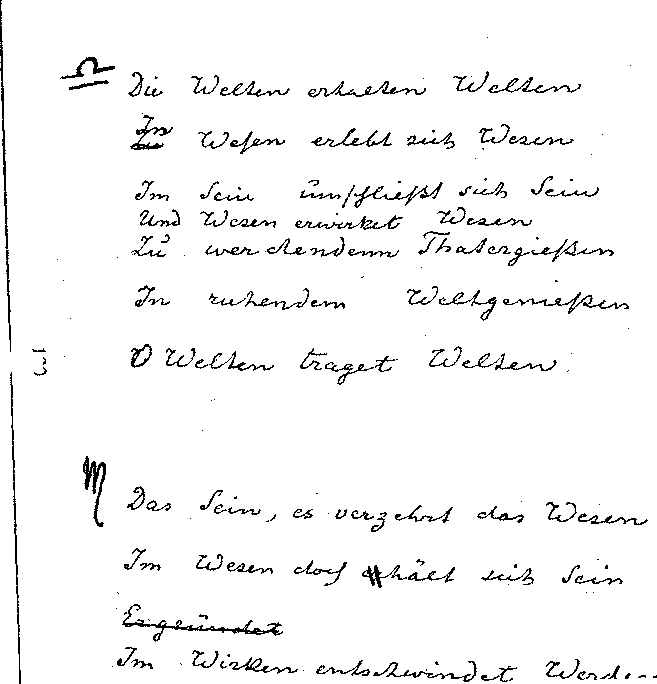 ♎ Die Welten erhalten Welten
In
Zu Wesen erlebt sich Wesen
Im Sein umschließt sich Sein
Und Wesen erwirket Wesen
Zu werdendem Thatergießen
In ruhendem Weltgenießen
O Welten traget Welten
13
♏ Das Sein, es verzehrt das Wesen
Im Wesen doch hält sich Sein
Ergründet
Im Wirken entschwindet